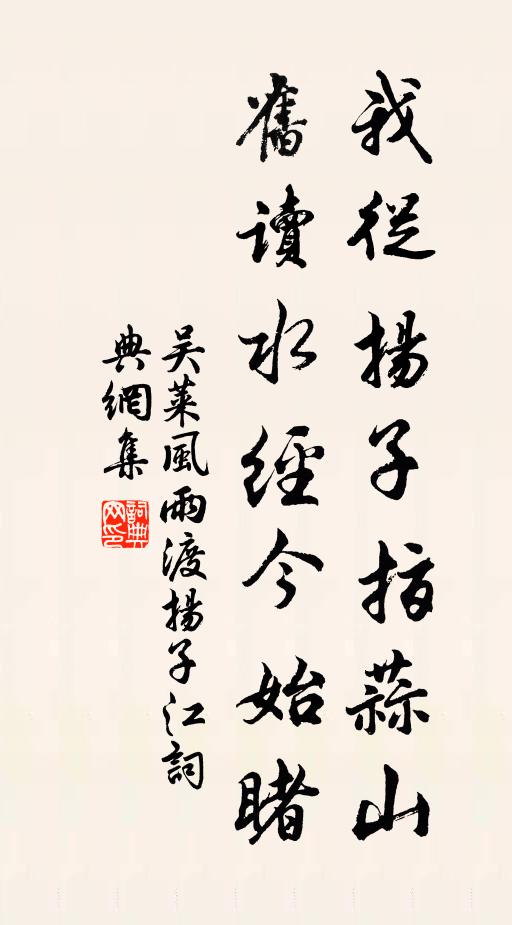 我從揚子指蒜山
舊讀水經今始睹
吴萊風雨渡揚子江詞
典網集
詞典網印